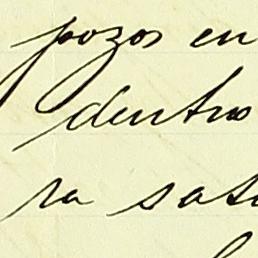 pozos en
dentro
ra sat